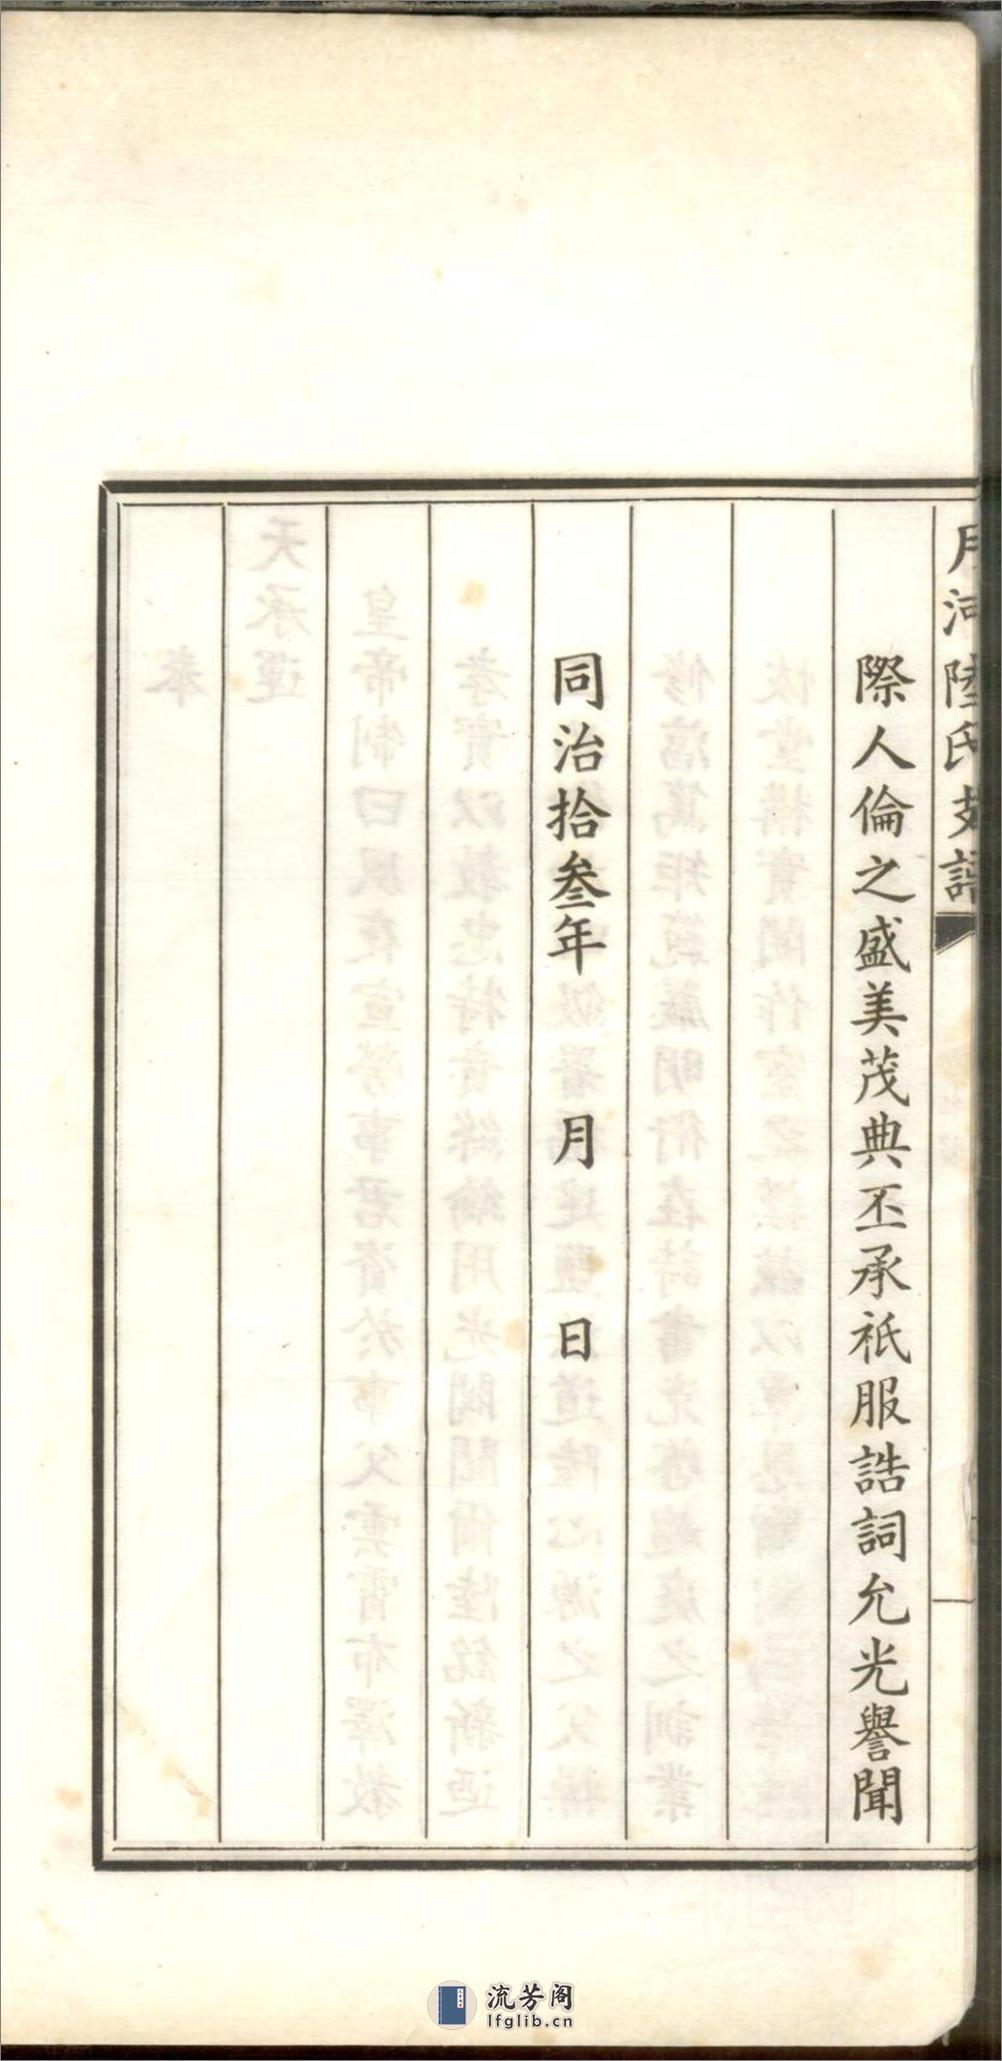 月河陸氏支譜
際人倫之盛美茂典丕承祇服誥詞允光譽聞
同治拾叄年　月　日
流芳阁
lfglib.cn